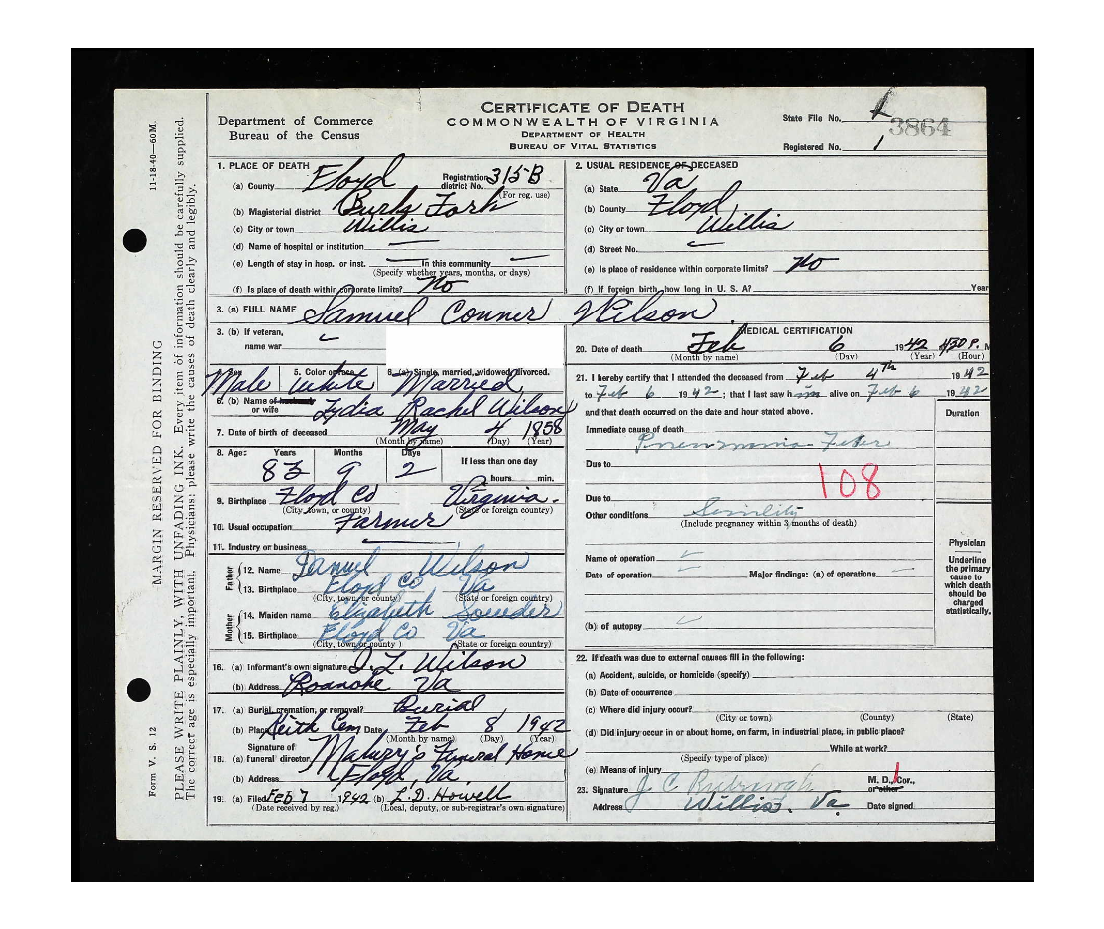 11-18-40—60M.
MARGIN RESERVED FOR BINDING
PLEASE WRITE PLAINLY, WITH UNFADING INK. Every item of information should be carefully supplied.
The correct age is especially important. Physicians: please write the causes of death clearly and legibly.
Form V. S. 12
Department of Commerce
Bureau of the Census
CERTIFICATE OF DEATH
COMMONWEALTH OF VIRGINIA
DEPARTMENT OF HEALTH
BUREAU OF VITAL STATISTICS
State File No. 3864
Registered No. 1
1. PLACE OF DEATH
(a) County Floyd Registration district No. 315-B
(For reg. use)
(b) Magisterial district Burks Fork
(c) City or town Willis
(d) Name of hospital or institution —
(e) Length of stay in hosp. or inst. — In this community —
(Specify whether years, months, or days)
(f) Is place of death within corporate limits? No
2. USUAL RESIDENCE OF DECEASED
(a) State Va
(b) County Floyd
(c) City or town Willis
(d) Street No.
(e) Is place of residence within corporate limits? No
(f) If foreign birth, how long in U. S. A? Year
3. (a) FULL NAME Samuel Conner Wilson
3. (b) If veteran,
name war
Sex 5. Color or race 6. (a) Single, married, widowed, divorced.
Male White Married
6. (b) Name of husband
or wife Lydia Rachel Wilson
7. Date of birth of deceased May 4 1858
(Month by name) (Day) (Year)
8. Age: Years Months Days If less than one day
83 9 2 hours min.
9. Birthplace Floyd Co Virginia.
(City, town, or county) (State or foreign country)
10. Usual occupation Farmer
11. Industry or business
Father
12. Name Daniel Wilson
13. Birthplace Floyd Co Va
(City, town, or county) (State or foreign country)
Mother
14. Maiden name Elizabeth Sowder
15. Birthplace Floyd Co Va
(City, town or county) (State or foreign country)
16. (a) Informant's own signature Wilson
(b) Address Roanoke Va
17. (a) Burial, cremation, or removal? Burial
(b) Place Keith Cem Date Feb 8 1942
(Month by name) (Day) (Year)
Signature of
18. (a) funeral director Funeral Home
(b) Address Floyd, Va.
19. (a) Filed Feb 7 1942 (b) L.D. Howell
(Date received by reg.) (Local, deputy, or sub-registrar's own signature)
MEDICAL CERTIFICATION
20. Date of death Feb 6 1942 4:30 P. M
(Month by name) (Day) (Year) (Hour)
21. I hereby certify that I attended the deceased from Feb 4th 1942
to Feb 6 1942; that I last saw him alive on Feb 6 1942
and that death occurred on the date and hour stated above.
Duration
Immediate cause of death
Due to
108
Due to
Other conditions Senility
(Include pregnancy within 3 months of death)
Name of operation
Date of operation Major findings: (a) of operations
(b) of autopsy
Physician
Underline
the primary
cause to
which death
should be
charged
statistically.
22. If death was due to external causes fill in the following:
(a) Accident, suicide, or homicide (specify)
(b) Date of occurrence
(c) Where did injury occur?
(City or town) (County) (State)
(d) Did injury occur in or about home, on farm, in industrial place, in public place?
While at work?
(Specify type of place)
(e) Means of injury
23. Signature J. C. M. D., Cor.,
or other
Address Willis, Va. Date signed